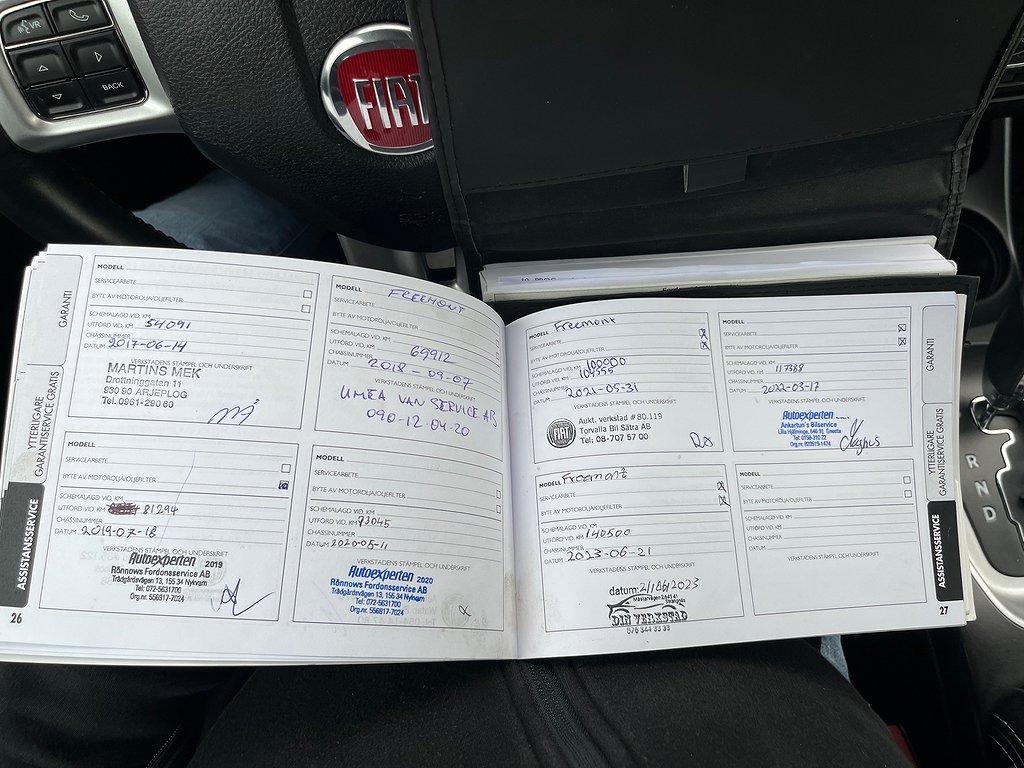 VR
BACK
FIAT
GARANTI
YTTERLIGARE
GARANTISERVICE GRATIS
ASSISTANSSERVICE
26
MODELL
SERVICEARBETE
BYTE AV MOTOROLJA/OLJEFILTER
SCHEMALAGD VID, KM
UTFÖRD VID, KM 54091
CHASSINUMMER
DATUM 2017-06-14
VERKSTADENS STÄMPEL OCH UNDERSKRIFT
MARTINS MEK
Drottninggatan 11
930 90 ARJEPLOG
Tel. 0961-290 60
MODELL FREEMONT
SERVICEARBETE
BYTE AV MOTOROLJA/OLJEFILTER
SCHEMALAGD VID, KM
UTFÖRD VID, KM 69912
CHASSINUMMER
DATUM 2018-09-07
VERKSTADENS STÄMPEL OCH UNDERSKRIFT
UMEA VAN SERVICE AB
090-12 04 20
MODELL
SERVICEARBETE
BYTE AV MOTOROLJA/OLJEFILTER
SCHEMALAGD VID, KM
UTFÖRD VID, KM 81294
CHASSINUMMER
DATUM 2019-07-18
VERKSTADENS STÄMPEL OCH UNDERSKRIFT
Autoexperten 2019
Rönnows Fordonsservice AB
Trädgårdsvägen 13, 155 34 Nykvarn
Tel: 072-5631700
Org.nr. 556817-7024
MODELL
SERVICEARBETE
BYTE AV MOTOROLJA/OLJEFILTER
SCHEMALAGD VID, KM
UTFÖRD VID, KM 93045
CHASSINUMMER
DATUM 2020-05-11
VERKSTADENS STÄMPEL OCH UNDERSKRIFT
Autoexperten 2020
Rönnows Fordonsservice AB
Trädgårdsvägen 13, 155 34 Nykvarn
Tel: 072-5631700
Org.nr. 556817-7024
MODELL Freemont
SERVICEARBETE
BYTE AV MOTOROLJA/OLJEFILTER
SCHEMALAGD VID, KM
UTFÖRD VID, KM
CHASSINUMMER
DATUM 2021-05-31
VERKSTADENS STÄMPEL OCH UNDERSKRIFT
FIAT
Aukt. verkstad #80.119
Torvalla Bil Sätra AB
Tel: 08-707 57 00
MODELL
SERVICEARBETE
BYTE AV MOTOROLJA/OLJEFILTER
SCHEMALAGD VID, KM
UTFÖRD VID, KM 117388
CHASSINUMMER
DATUM 2022-03-17
VERKSTADENS STÄMPEL OCH UNDERSKRIFT
Autoexperten
Ankartun's Bilservice
Tel: 0158-310 22
Org.nr. 820519-1474
MODELL Freemont
SERVICEARBETE
BYTE AV MOTOROLJA/OLJEFILTER
SCHEMALAGD VID, KM
UTFÖRD VID, KM 140500
CHASSINUMMER
DATUM 2023-06-21
VERKSTADENS STÄMPEL OCH UNDERSKRIFT
datum: 21/06/2023
DIN VERKSTAD
076 344 33 33
MODELL
SERVICEARBETE
BYTE AV MOTOROLJA/OLJEFILTER
SCHEMALAGD VID, KM
UTFÖRD VID, KM
CHASSINUMMER
DATUM
VERKSTADENS STÄMPEL OCH UNDERSKRIFT
GARANTI
YTTERLIGARE
GARANTISERVICE GRATIS
ASSISTANSSERVICE
27
R
N
D